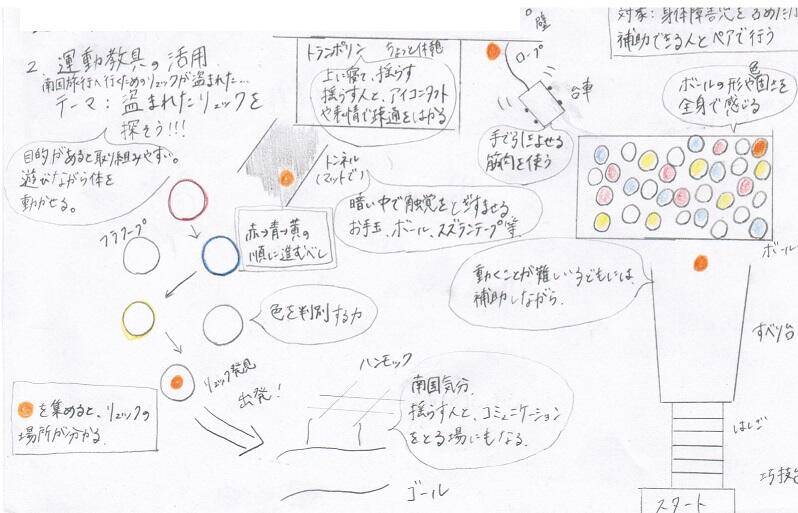 2. 運動教具の活用
南国旅行へ行くためのリュックが盗まれた…
テーマ: 盗まれたリュックを
探そう!!!
目的があると取り組みやすい。
遊びながら体を
動かせる。
トランポリン
ちょっと休憩
上に寝て、揺らす
揺らす人と、アイコンタクト
や表情で疎通をはかる
壁
ロープ
台車
手で引きよせる
筋肉を使う
対象: 身体障害児を含めた
補助できる人とペアで行う
ボールの形や色固さを
全身で感じる
トンネル
(マットで)
暗い中で触覚をとぎすませる
お手玉、ボール、スズランテープ等
フラフープ
赤→青→黄の
順に進むべし
色を判別する力
動くことが難しい子どもには、
補助しながら、
ボール
すべり台
はしご
巧技台
スタート
リュック発見
出発!
ハンモック
南国気分。
揺らす人と、コミュニケーション
をとる場にもなる。
を集めると、リュックの
場所が分かる。
ゴール